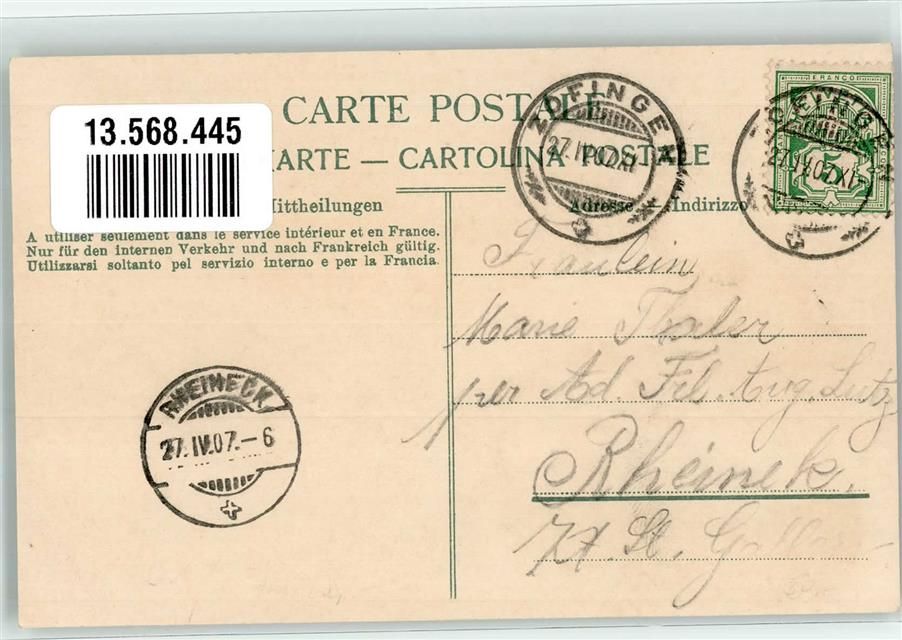 13.568.445
CARTE POSTALE
KARTE — CARTOLINA POSTALE
Mittheilungen
Adresse Indirizzo
A utiliser seulement dans le service intérieur et en France.
Nur für den internen Verkehr und nach Frankreich gültig.
Utilizzarsi soltanto pel servizio interno e per la Francia.
ZOFINGEN
27.IV.07.XI
FRANCO
5
ZOFINGEN
27.IV.07.XI
Fräulein
Marie Thaler
per Ad. Aug. Lutz
Rheinek.
Kt. St. Gallen
RHEINECK
27.IV.07.–6